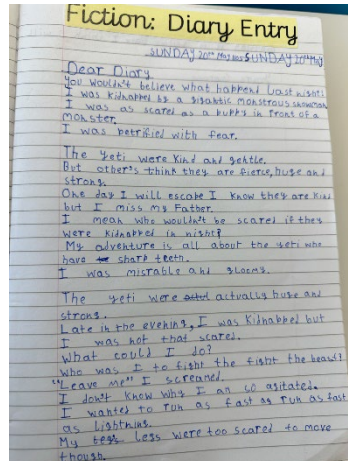 Fiction: Diary Entry
SUNDAY 20th May 2025 SUNDAY 20th May
Dear Diary
You wouldn't believe what happend last night!
I was kidnapped by a gigantic monstrous snowman
I was as scared as a puppy in frons of a
monster.
I was petrified with fear.
The Yeti were kind and gentle.
But other's think they are fierce, huge and
strong.
One day I will escape I know they are kind
but I miss my Father.
I mean who wouldn't be scared if they
were kidnapped in night?
My adventure is all about the yeti who
have sharp teeth.
I was misrable and gloomy.
The yeti were actually huge and
strong.
Late in the evening, I was kidnapped but
I was not that scared.
What could I do?
Who was I to fight the fight the beast?
"Leave me" I screamed.
I don't know why I am so agitated.
I wanted to run as fast as run as fast
as lightning.
My legs were too scared to move
though.